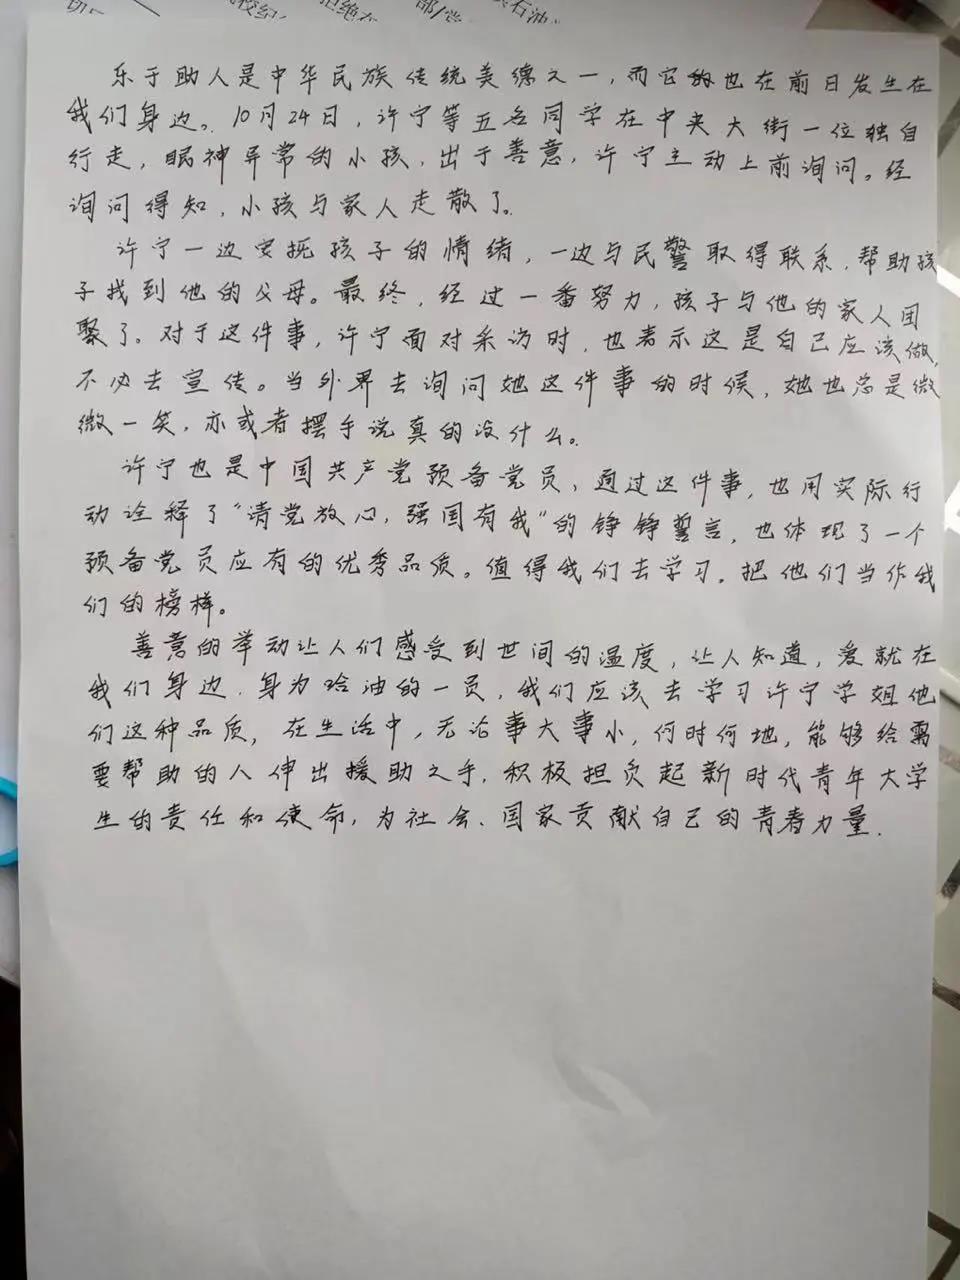 乐于助人是中华民族传统美德之一，而它也在前日发生在
我们身边。10月24日，许宁等五名同学在中央大街一位独自
行走，眼神异常的小孩，出于善意，许宁主动上前询问。经
询问得知，小孩与家人走散了。
许宁一边安抚孩子的情绪，一边与民警取得联系，帮助孩
子找到他的父母。最终，经过一番努力，孩子与他的家人团
聚了。对于这件事，许宁面对采访时，也表示这是自己应该做，
不必去宣传。当外界去询问她这件事的时候，她也总是微
微一笑，亦或者摆手说真的没什么。
许宁也是中国共产党预备党员，通过这件事，也用实际行
动诠释了“请党放心，强国有我”的铮铮誓言，也体现了一个
预备党员应有的优秀品质。值得我们去学习，把他们当作我
们的榜样。
善意的举动让人们感受到世间的温度，让人知道，爱就在
我们身边，身为哈油的一员，我们应该去学习许宁学姐他
们这种品质，在生活中，无论事大事小，何时何地，能够给需
要帮助的人伸出援助之手，积极担负起新时代青年大学
生的责任和使命，为社会、国家贡献自己的青春力量.